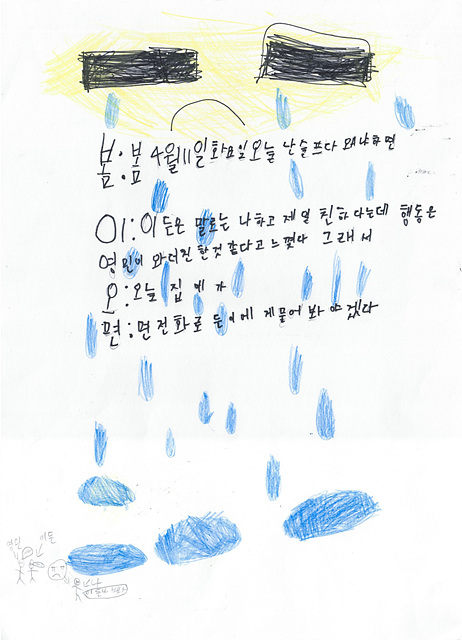 봄:봄 4월11일화요일오늘 난슬프다 왜냐하면
이:이든은 말로는 나하고 제일 친하다는데 행동은
영민이 와더친한것 같다고 느꼈다 그래서
오:오늘 집에가
면:면전화로 든이에게물어 봐야겠다
영민 이든
나